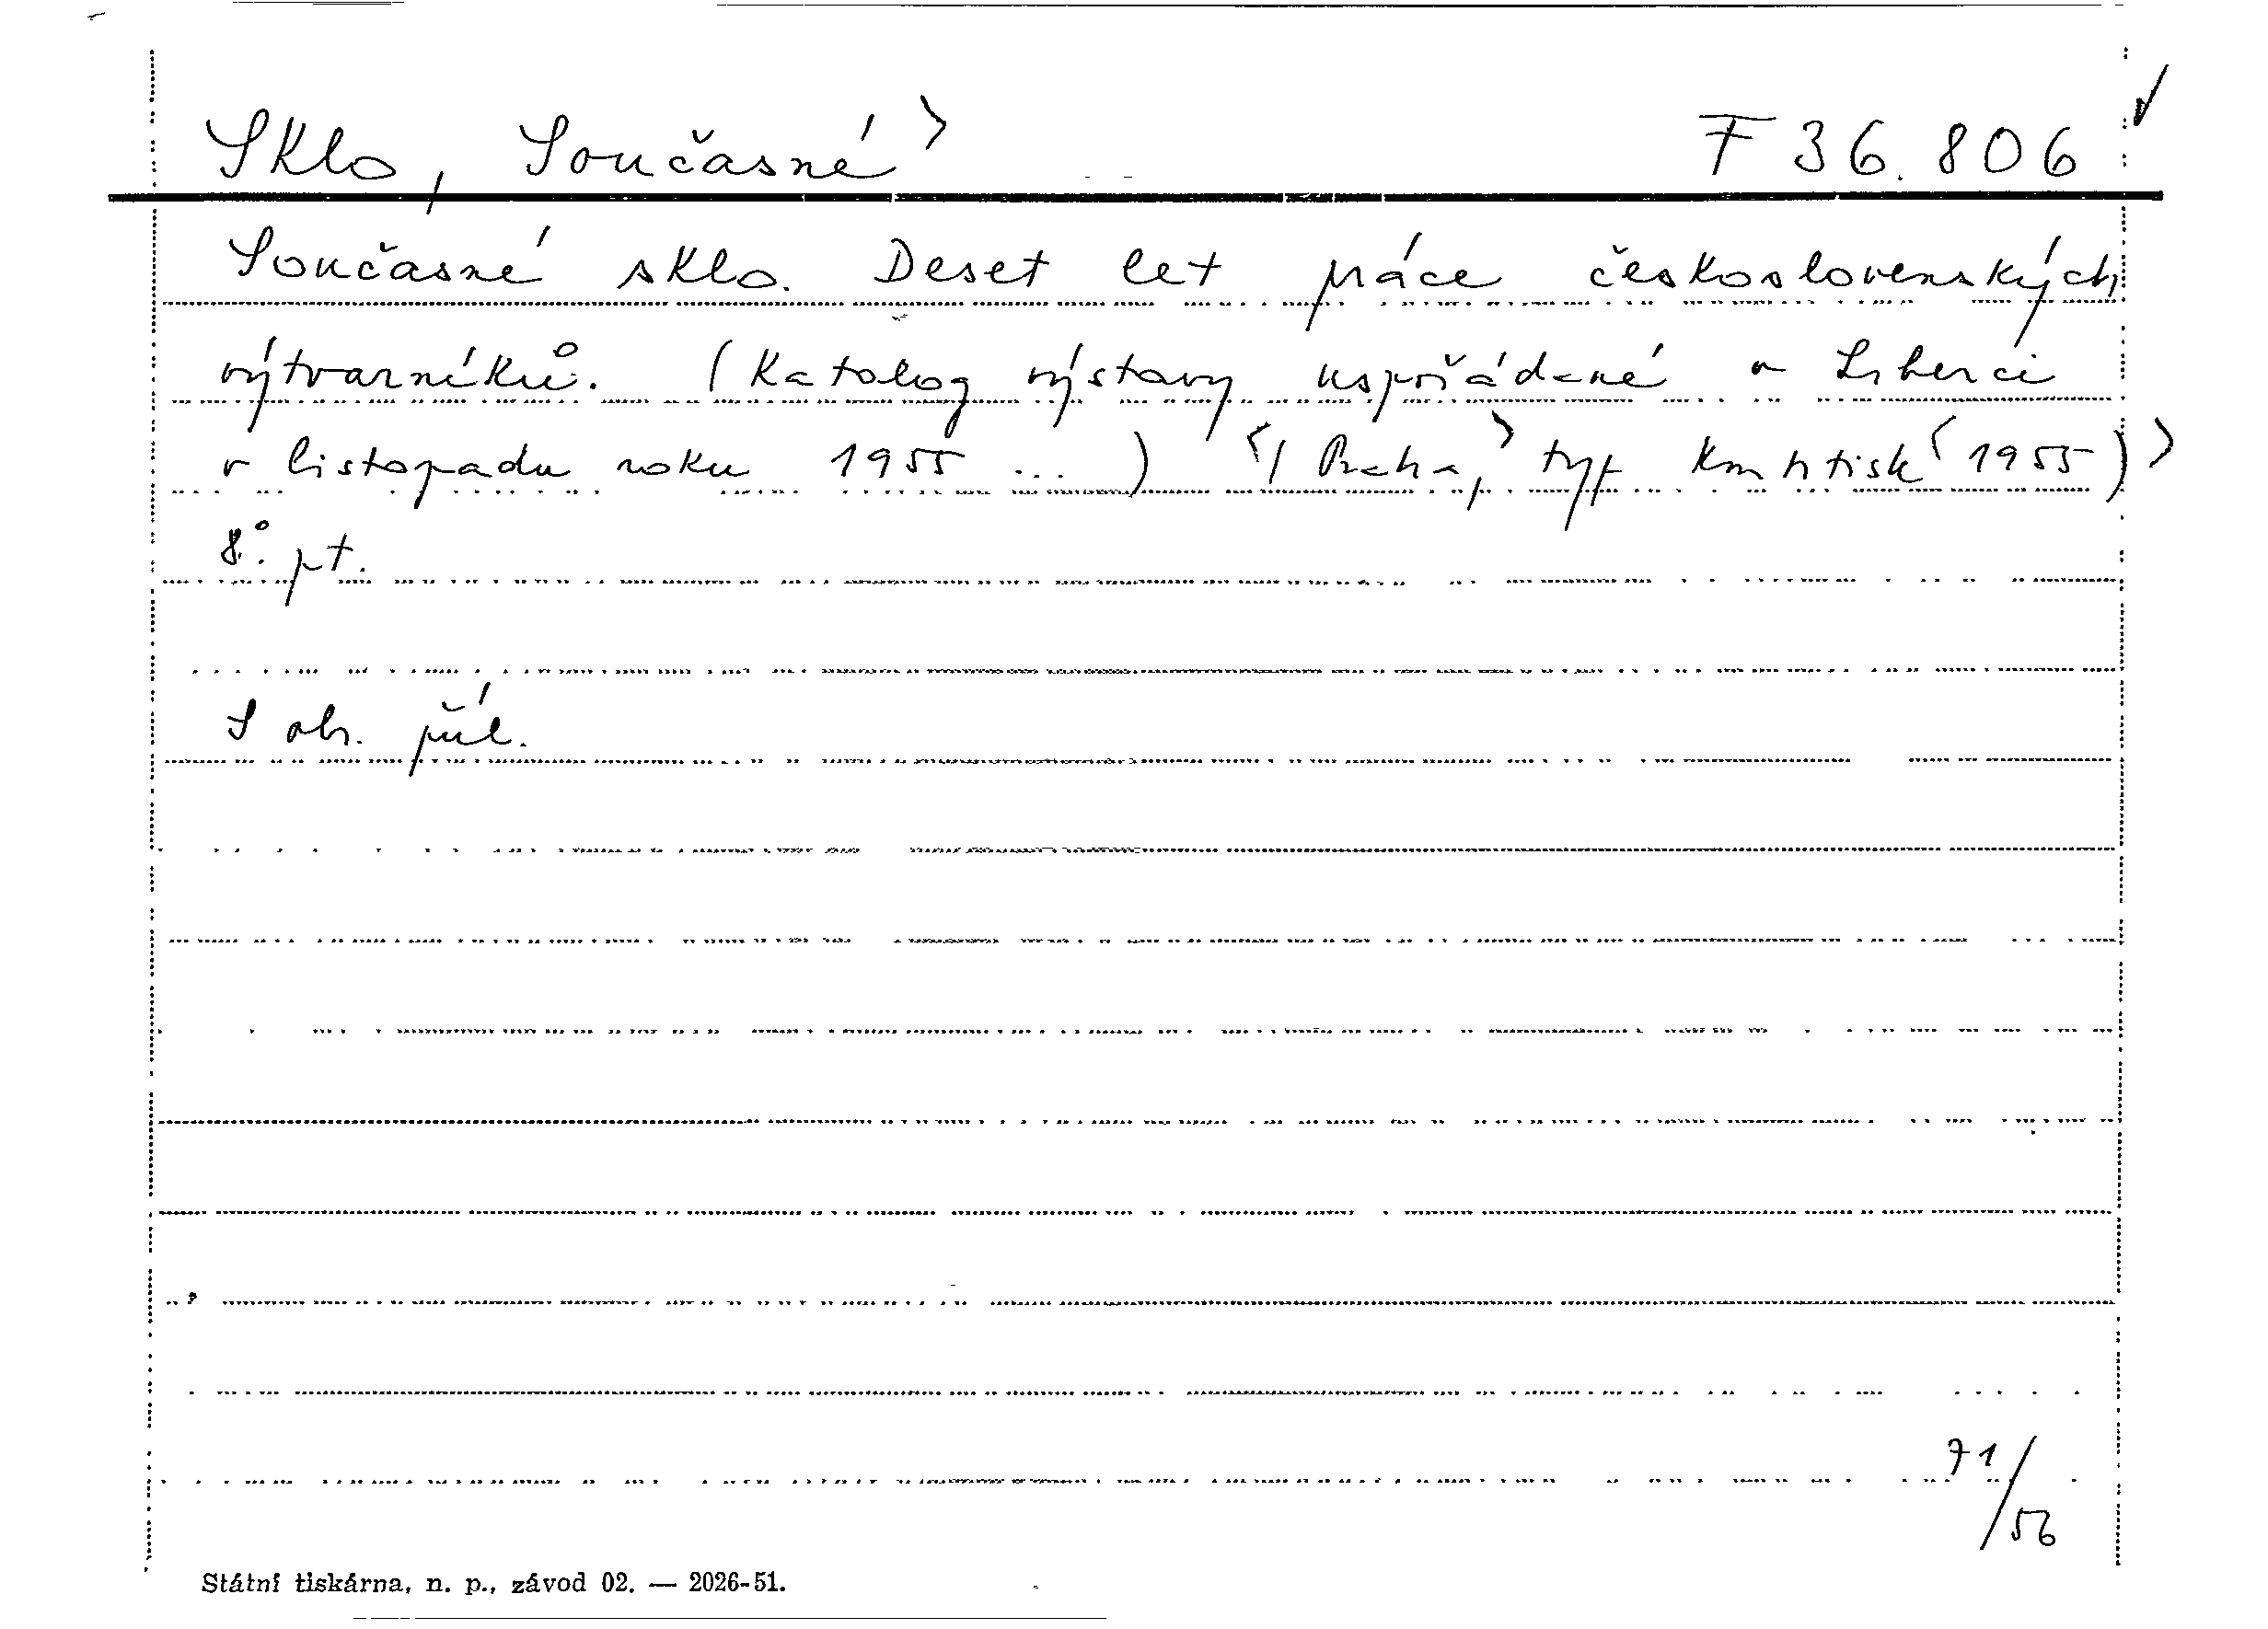 Sklo, Současné> F 36.806
Současné sklo. Deset let práce československých
výtvarníků. (Katalog výstavy uspořádané v Liberci
v listopadu roku 1955 ...) <(Praha,> typ. Knihtisk <1955)>
8°. pt.
S obr. příl.
71/56
Státní tiskárna, n. p., závod 02. — 2026-51.